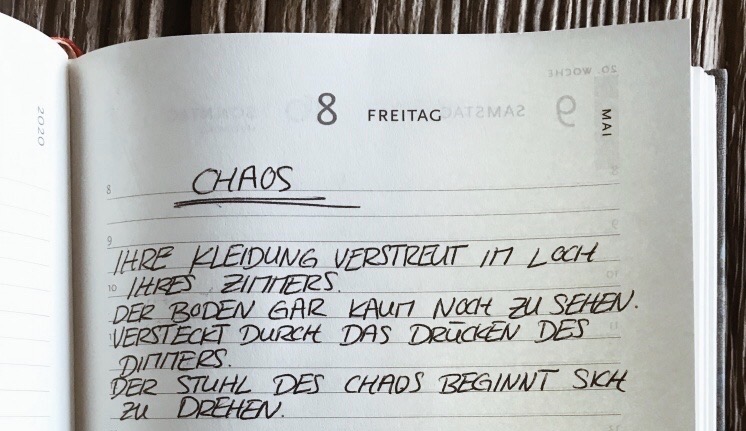 2020
8 FREITAG
MAI
8
CHAOS
9
IHRE KLEIDUNG VERSTREUT IM LOCH
10 IHRES ZIMMERS.
DER BODEN GAR KAUM NOCH ZU SEHEN.
VERSTECKT DURCH DAS DRÜCKEN DES
DIMMERS.
DER STUHL DES CHAOS BEGINNT SICH
ZU DREHEN.